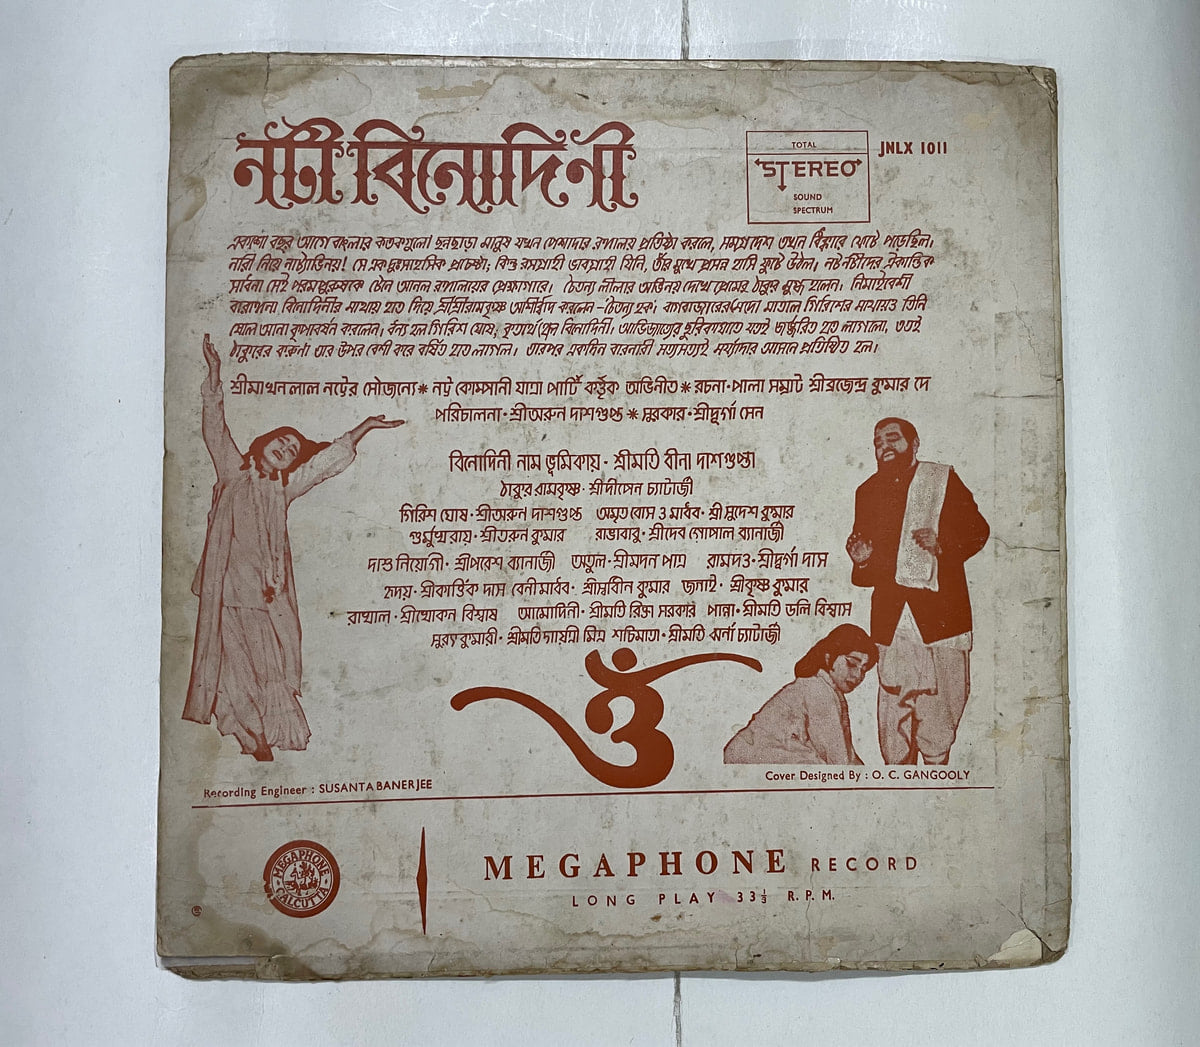 নটী বিনোদিনী
TOTAL
STEREO
SOUND
SPECTRUM
JNLX 1011
একশো বছর আগে বাংলার কতকগুলো ছন্নছাড়া মানুষ যখন পেশাদার রঙ্গালয় প্রতিষ্ঠা করলে, সমগ্র দেশ তখন ধিক্কারে ফেটে পড়েছিল।
নারী নিয়ে নাট্যাভিনয়! সে এক দুঃসাহসিক প্রচেষ্টা; কিন্তু রসগ্রাহী ভাবগ্রাহী যিনি, তাঁর মুখে প্রসন্ন হাসি ফুটে উঠল। নটনটীদের ঐকান্তিক
সাধনা সেই পরমপুরুষকে টেনে আনল রঙ্গালয়ের প্রেক্ষাগারে। চৈতন্য লীলার অভিনয় দেখে প্রেমের ঠাকুর মুগ্ধ হলেন। নিমাইবেশী
বারাঙ্গনা বিনোদিনীর মাথায় হাত দিয়ে শ্রীশ্রীরামকৃষ্ণ আশীর্ব্বাদ করলেন-'চৈতন্য হক'। বাগবাজারের মদো মাতাল গিরিশের মাথায়ও তিনি
ষোল আনা কৃপাবর্ষন করলেন। ধন্য হল গিরিশ ঘোষ, কৃতার্থ হল বিনোদিনী। আভিজাত্যের ছুরিকাঘাতে যতই জর্জ্জরিত হতে লাগলো, ততই
ঠাকুরের করুনা তার উপর বেশী করে বর্ষিত হতে লাগল। তারপর একদিন বারনারী সত্যসত্যই মর্য্যাদার আসনে প্রতিষ্ঠিত হল।
শ্রীমাখনলাল নট্টের সৌজন্যে * নট্ট কোম্পানী যাত্রা পার্টি কর্ত্তৃক অভিনীত * রচনা·পালা সম্রাট শ্রীব্রজেন্দ্র কুমার দে
পরিচালনা·শ্রীঅরুন দাশগুপ্ত * সুরকার·শ্রীদুর্গা সেন
বিনোদিনী নাম ভূমিকায়·শ্রীমতি বীনা দাশগুপ্তা
ঠাকুর রামকৃষ্ণ·শ্রীদীপেন চ্যাটার্জী
গিরিশ ঘোষ·শ্রীঅরুন দাশগুপ্ত অমৃত বোস ও মাধব·শ্রী সুদেশ কুমার
গুর্মুখ রায়·শ্রীতরুন কুমার রাঙাবাবু·শ্রীদেব গোপাল ব্যানার্জী
দাশু নিয়োগী·শ্রীপরেশ ব্যানার্জী অতুল·শ্রীমদন পাত্র রামদত্ত·শ্রীদুর্গা দাস
হৃদয়·শ্রীকার্ত্তিক দাস বেনীমাধব·শ্রীসুধীন কুমার জগাই·শ্রীকৃষ্ণ কুমার
রাখাল·শ্রীখোকন বিশ্বাস আমোদিনী·শ্রীমতি রিক্তা সরকার পান্না·শ্রীমতি ডলি বিশ্বাস
সুরথকুমারী·শ্রীমতি গায়ত্রী মিত্র শচিমাতা·শ্রীমতি ঝর্না চ্যাটার্জী
ওঁ
Recording Engineer : SUSANTA BANERJEE
Cover Designed By : O. C. GANGOOLY
MEGAPHONE
CALCUTTA
MEGAPHONE RECORD
LONG PLAY 33⅓ R.P.M.